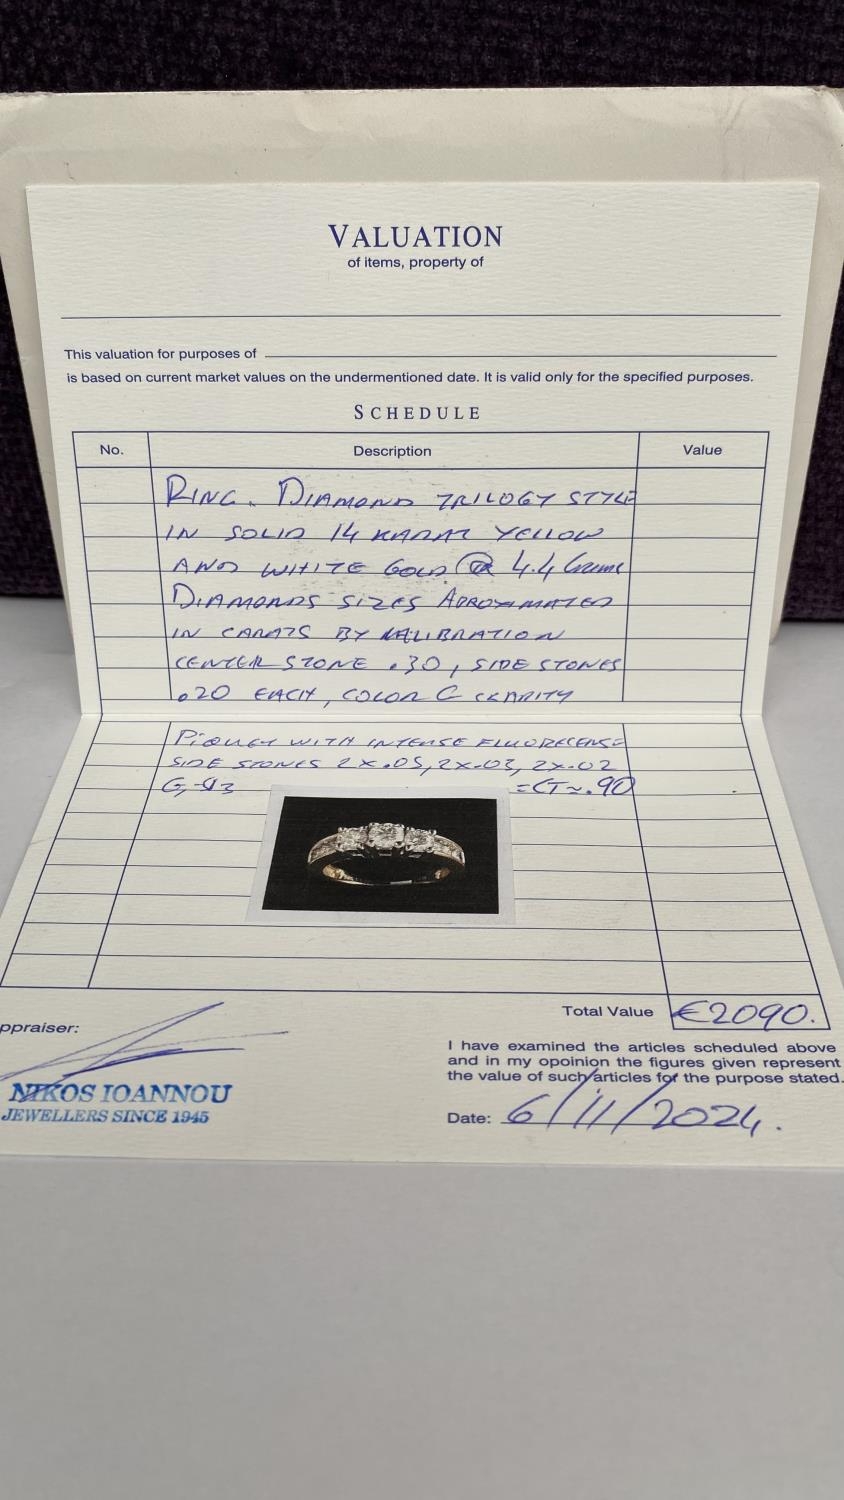 VALUATION
of items, property of
This valuation for purposes of
is based on current market values on the undermentioned date. It is valid only for the specified purposes.
SCHEDULE
No. Description Value
RING. DIAMOND TRILOGY STYLE
IN SOLID 14 KARAT YELLOW
AND WHITE GOLD @ 4.4 Grams
DIAMONDS SIZES APROXIMATED
IN CARATS BY KALIBRATION
CENTER STONE .30, SIDE STONES
.20 EACH, COLOR G CLARITY
PIQUET WITH INTENSE FLUORECENSE
SIDE STONES 2x.05, 2x.03, 2x.02
G, =CT≈.90
Total Value €2090.
ppraiser:
I have examined the articles scheduled above
and in my opoinion the figures given represent
the value of such articles for the purpose stated.
NIKOS IOANNOU
JEWELLERS SINCE 1945
Date: 6/11/2024.